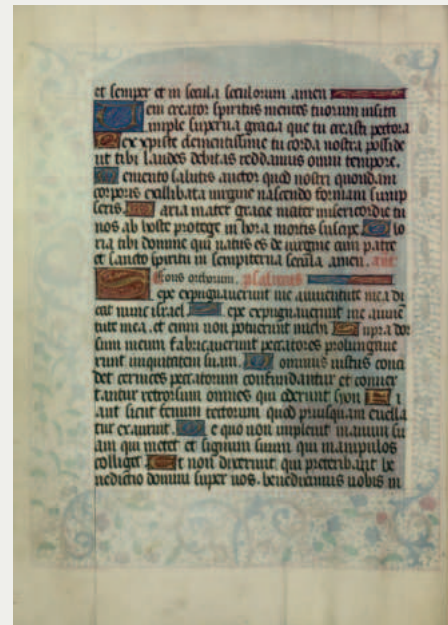 et semper et in secula seculorum amen
Veni creator spiritus mentes tuorum visita
imple superna gracia que tu creasti pectora
Rex xpiste clementissime tu corda nostra posside
ut tibi laudes debitas reddamus omni tempore.
Memento salutis auctor quod nostri quondam
corporis ex illibata virgine nascendo formam sump
seris. Maria mater gracie mater misericordie tu
nos ab hoste protege in hora mortis suscipe. Glo
ria tibi domine qui natus es de virgine cum patre
et sancto spiritu in sempiterna secula. amen. ant
Fons ortorum. psalmus
Sepe expugnaverunt me a iuventute mea di
cat nunc israel Sepe expugnaverunt me a iuven
tute mea. et enim non potuerunt michi Supra dor
sum meum fabricaverunt peccatores prolongave
runt iniquitatem suam. Dominus iustus conci
det cervices peccatorum confundantur et conver
tantur retrorsum omnes qui oderunt syon Fi
ant sicut fenum tectorum quod priusquam evella
tur exaruit. De quo non implevit manum su
am qui metet et signum suum qui manipulos
colliget Et non dixerunt qui preteribant be
nedictio domini super vos. benediximus vobis in